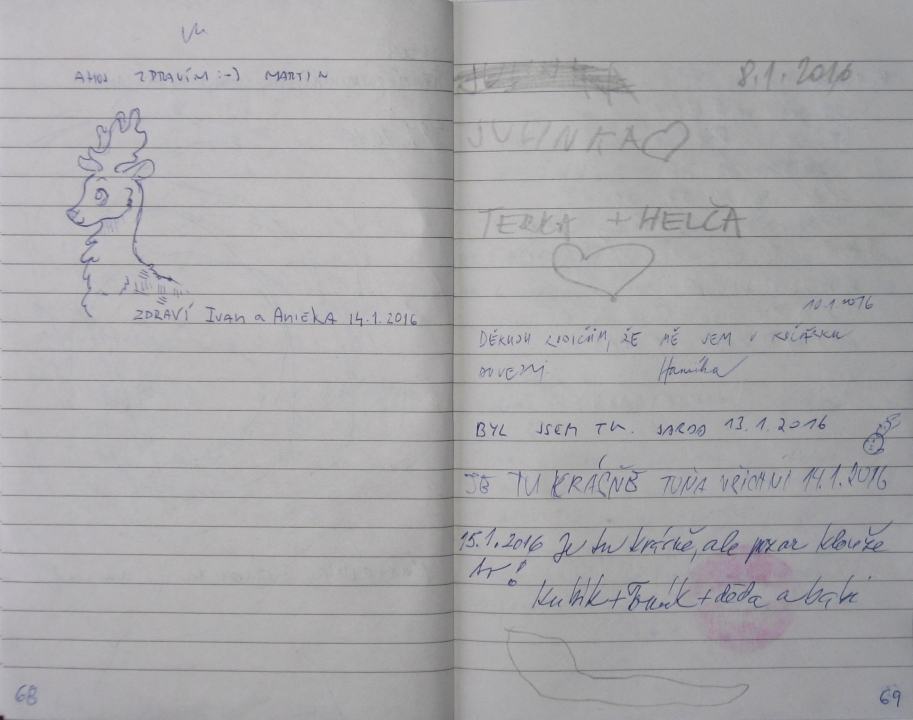 AHOJ ZDRAVÍM :-) MARTIN
ZDRAVÍ IVAN a ANIČKA 14.1.2016
68
JULINKA
8.1.2016
JULINKA
TERKA + HELČA
10.1.2016
DĚKUJU RODIČŮM, ŽE MĚ SEM V KOČÁRKU
DOVEZLI Hanička
BYL JSEM TU. JARDA 13.1.2016
JE TU KRÁSNĚ TOŇA 14.1.2016
15.1.2016 Je tu krásně, ale pozor klouže
to!
Kubík + Toník + děda a babi
69